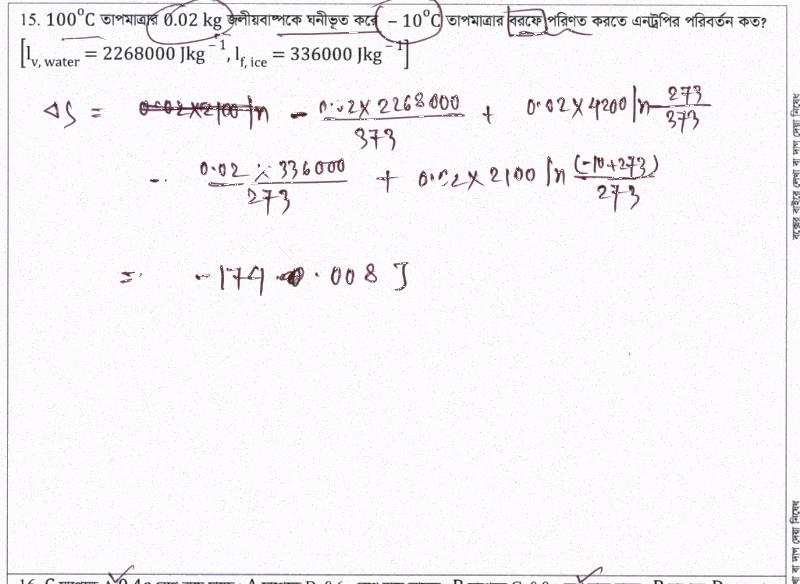 15. 100°C তাপমাত্রার 0.02 kg জলীয়বাষ্পকে ঘনীভূত করে – 10°C তাপমাত্রার বরফে পরিণত করতে এনট্রপির পরিবর্তন কত?
[l_v, water = 2268000 Jkg⁻¹, l_f, ice = 336000 Jkg⁻¹]
ΔS = - 0.02 × 2268000 / 373 + 0.02 × 4200 ln 273/373
- 0.02 × 336000 / 273 + 0.02 × 2100 ln (-10+273)/273
= -174.008 J
বক্সের বাইরে লেখা বা দাগ দেয়া নিষেধ
বা দাগ দেয়া নিষেধ